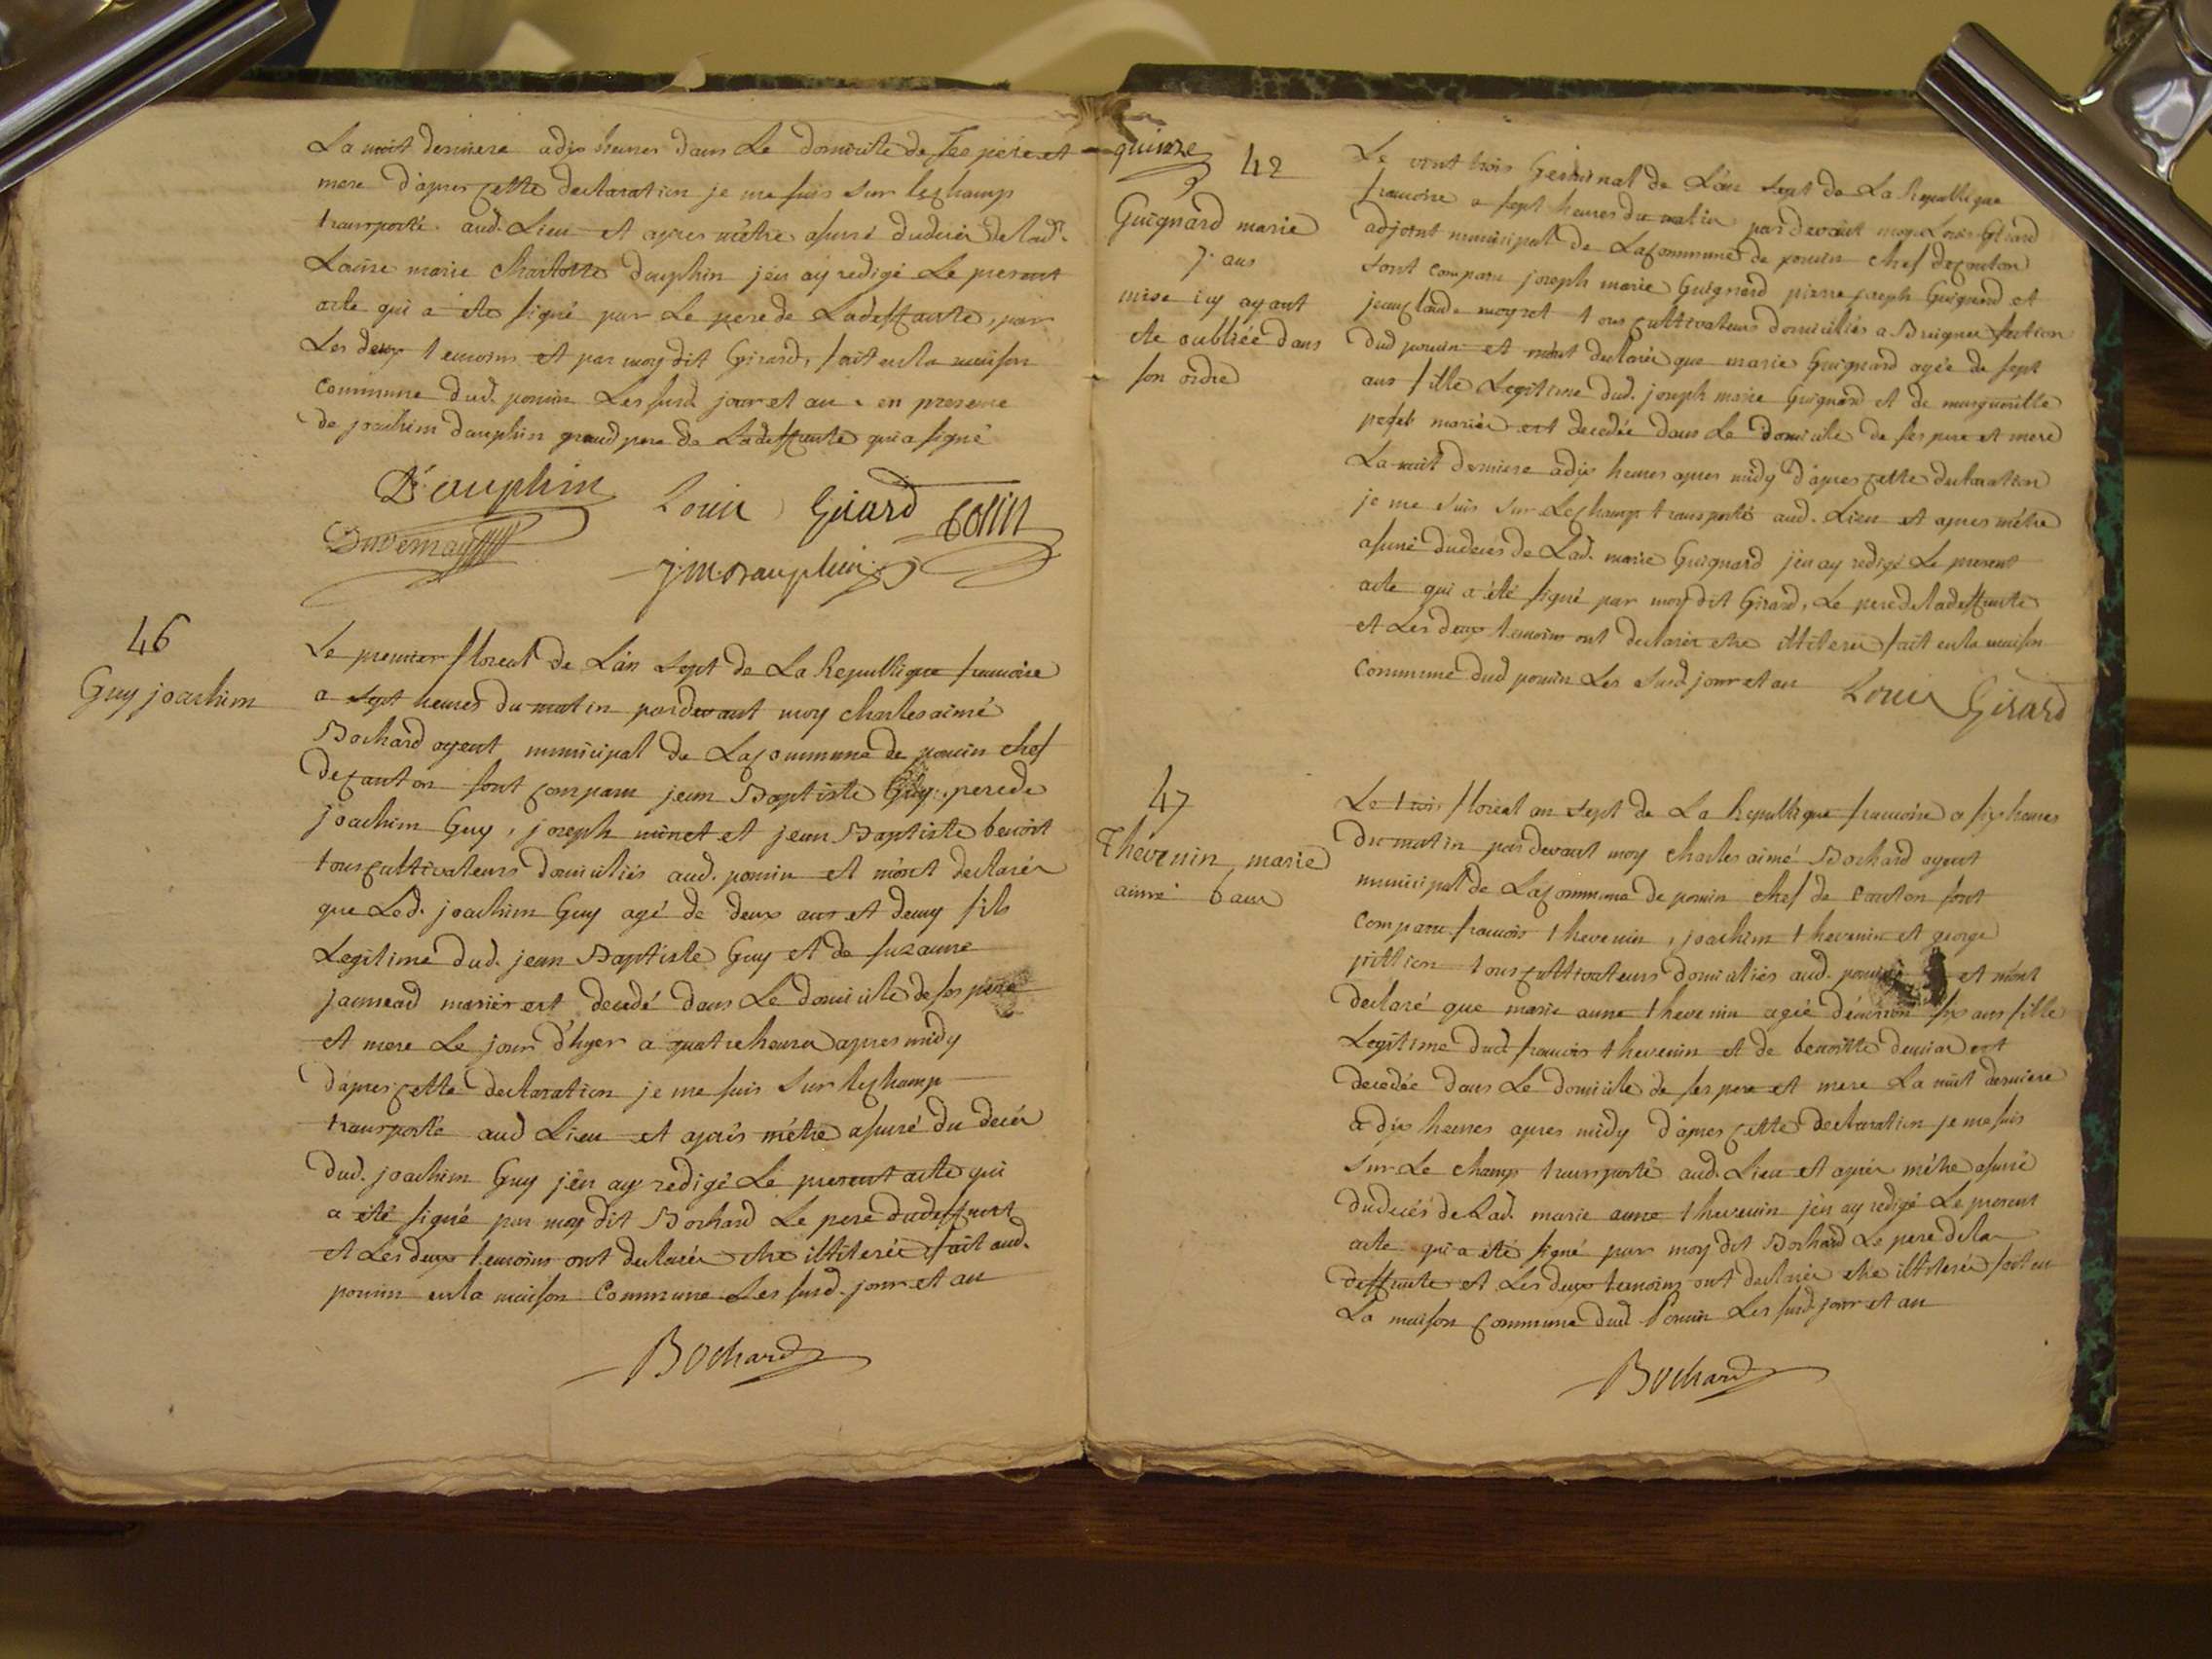 La nuit derniere a dix heures dans Le domicile de ses pere et
mere d'apres cette declaration je me suis sur le champ
transporté aud. Lieu et apres m'être assuré du deces de lad.
Laure marie charlotte dauphin j'en ay redigé Le present
acte qui a été signé par Le pere de Ladeffunte, par
Les deux temoins et par moy dit Girard, fait en la maison
commune dud. poncin Les susd. jour et an. en presence
de joachim dauphin grand pere de Ladeffunte qui a signé
Dauphin Louis Girard Collin
Duvernay
J M Dauphin
46
Guy joachim
Le premier floreal de L'an sept de La Republique francoise
a sept heures du matin pardevant moy charles aimé
Bochard agent municipal de La commune de poncin chef
de canton sont comparu jean Baptiste Guy pere de
joachim Guy, joseph minet et jean Baptiste benoit
tous cultivateurs domiciliés aud. poncin et m'ont declarés
que Led. joachim Guy agé de deux ans et demy fils
Legitime dud. jean Baptiste Guy et de suzanne
janneaud mariés est decedé dans Le domicile de ses pere
et mere Le jour d'hyer a quatre heures apres midy
d'apres cette declaration je me suis sur le champ
transporté aud Lieu et aprés m'être assuré du decés
dud. joachim Guy j'en ay redigé Le present acte qui
a été signé par moy dit Bochard Le pere du deffunt
et Les deux temoins ont declarés etre illiterés fait aud.
poncin en la maison Commune Les susd. jour et an
Bochard
quinze
42
Guignard marie
7 ans
mise icy ayant
ete oubliée dans
son ordre
Le vint trois Germinal de L'an sept de La Republique
francoise a sept heures du matin par devant moy Louis Girard
adjoint municipal de La commune de poncin chef de canton
sont comparu joseph marie Guignard pierre joseph Guignard et
jean claude moyret tous cultivateurs domiciliés a Breignes section
dud poncin et m'ont declarés que marie Guignard agée de sept
ans fille Legitime dud. joseph marie Guignard et de marguerite
mariés est decedée dans Le domicile de ses pere et mere
La nuit derniere a dix heures apres midy d'apres cette declaration
je me suis sur Le champ transporté aud. Lieu et apres m'être
assuré du deces de Lad. marie Guignard j'en ay redigé Le present
acte qui a été signé par moy dit Girard, Le pere de ladeffunte
et Les deux temoins ont declarés etre illiterés fait en la maison
Commune dud poncin Les susd jour et an Louis Girard
47
Thevenin marie
aimé 6 ans
Le trois floreal an sept de La Republique francoise a six heures
du matin par devant moy charles aimé Bochard agent
municipal de La commune de poncin chef de canton sont
Comparu francois thevenin, joachim thevenin et george
pittion tous cultivateurs domiciliés aud. poncin et m'ont
declaré que marie anne thevenin agée d'environ six ans fille
Legitime dud francois thevenin et de benoitte est
decedée dans Le domicile de ses pere et mere La nuit derniere
a dix heures apres midy d'apres cette declaration je me suis
sur Le champ transporté aud. Lieu et aprés m'être assuré
du decés de Lad. marie anne thevenin j'en ay redigé Le present
acte qui a été signé par moy dit Bochard Le pere de la
deffunte et Les deux temoins ont declarés etre illiterés fait en
La maison commune dud Poncin Les susd. jour et an
Bochard